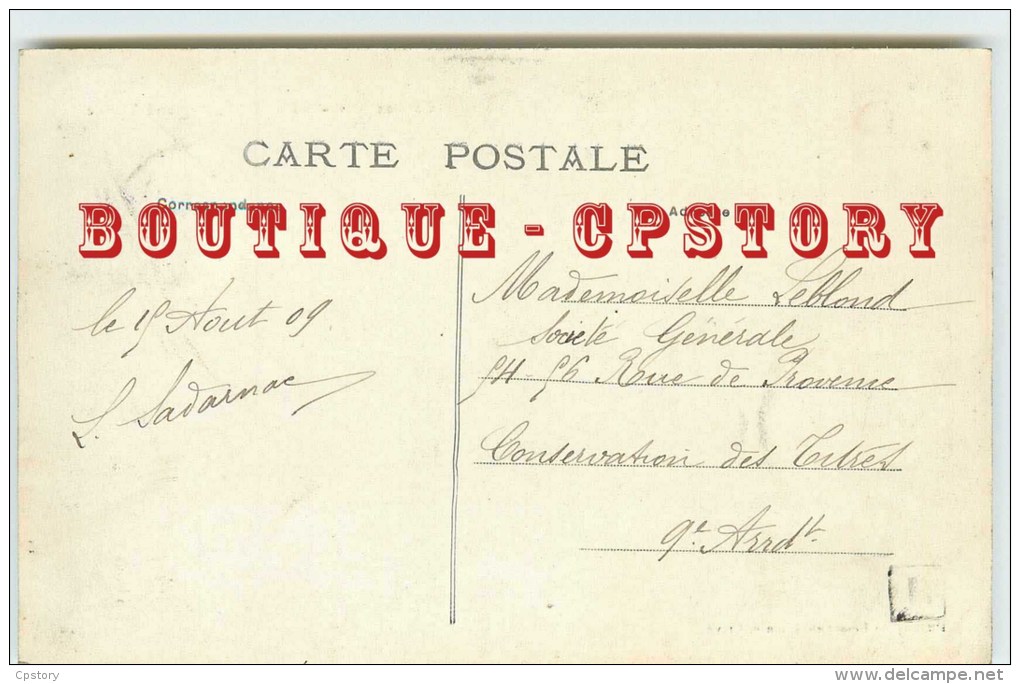 CARTE POSTALE
Correspondance
Adresse
BOUTIQUE - CPSTORY
le 15 Aout 09.
L. Sadarnac
Mademoiselle Leblond
Société Générale
54-56 Rue de Provence
Conservation des Titres
9e Arrdt.
Cpstory
www.delcampe.net